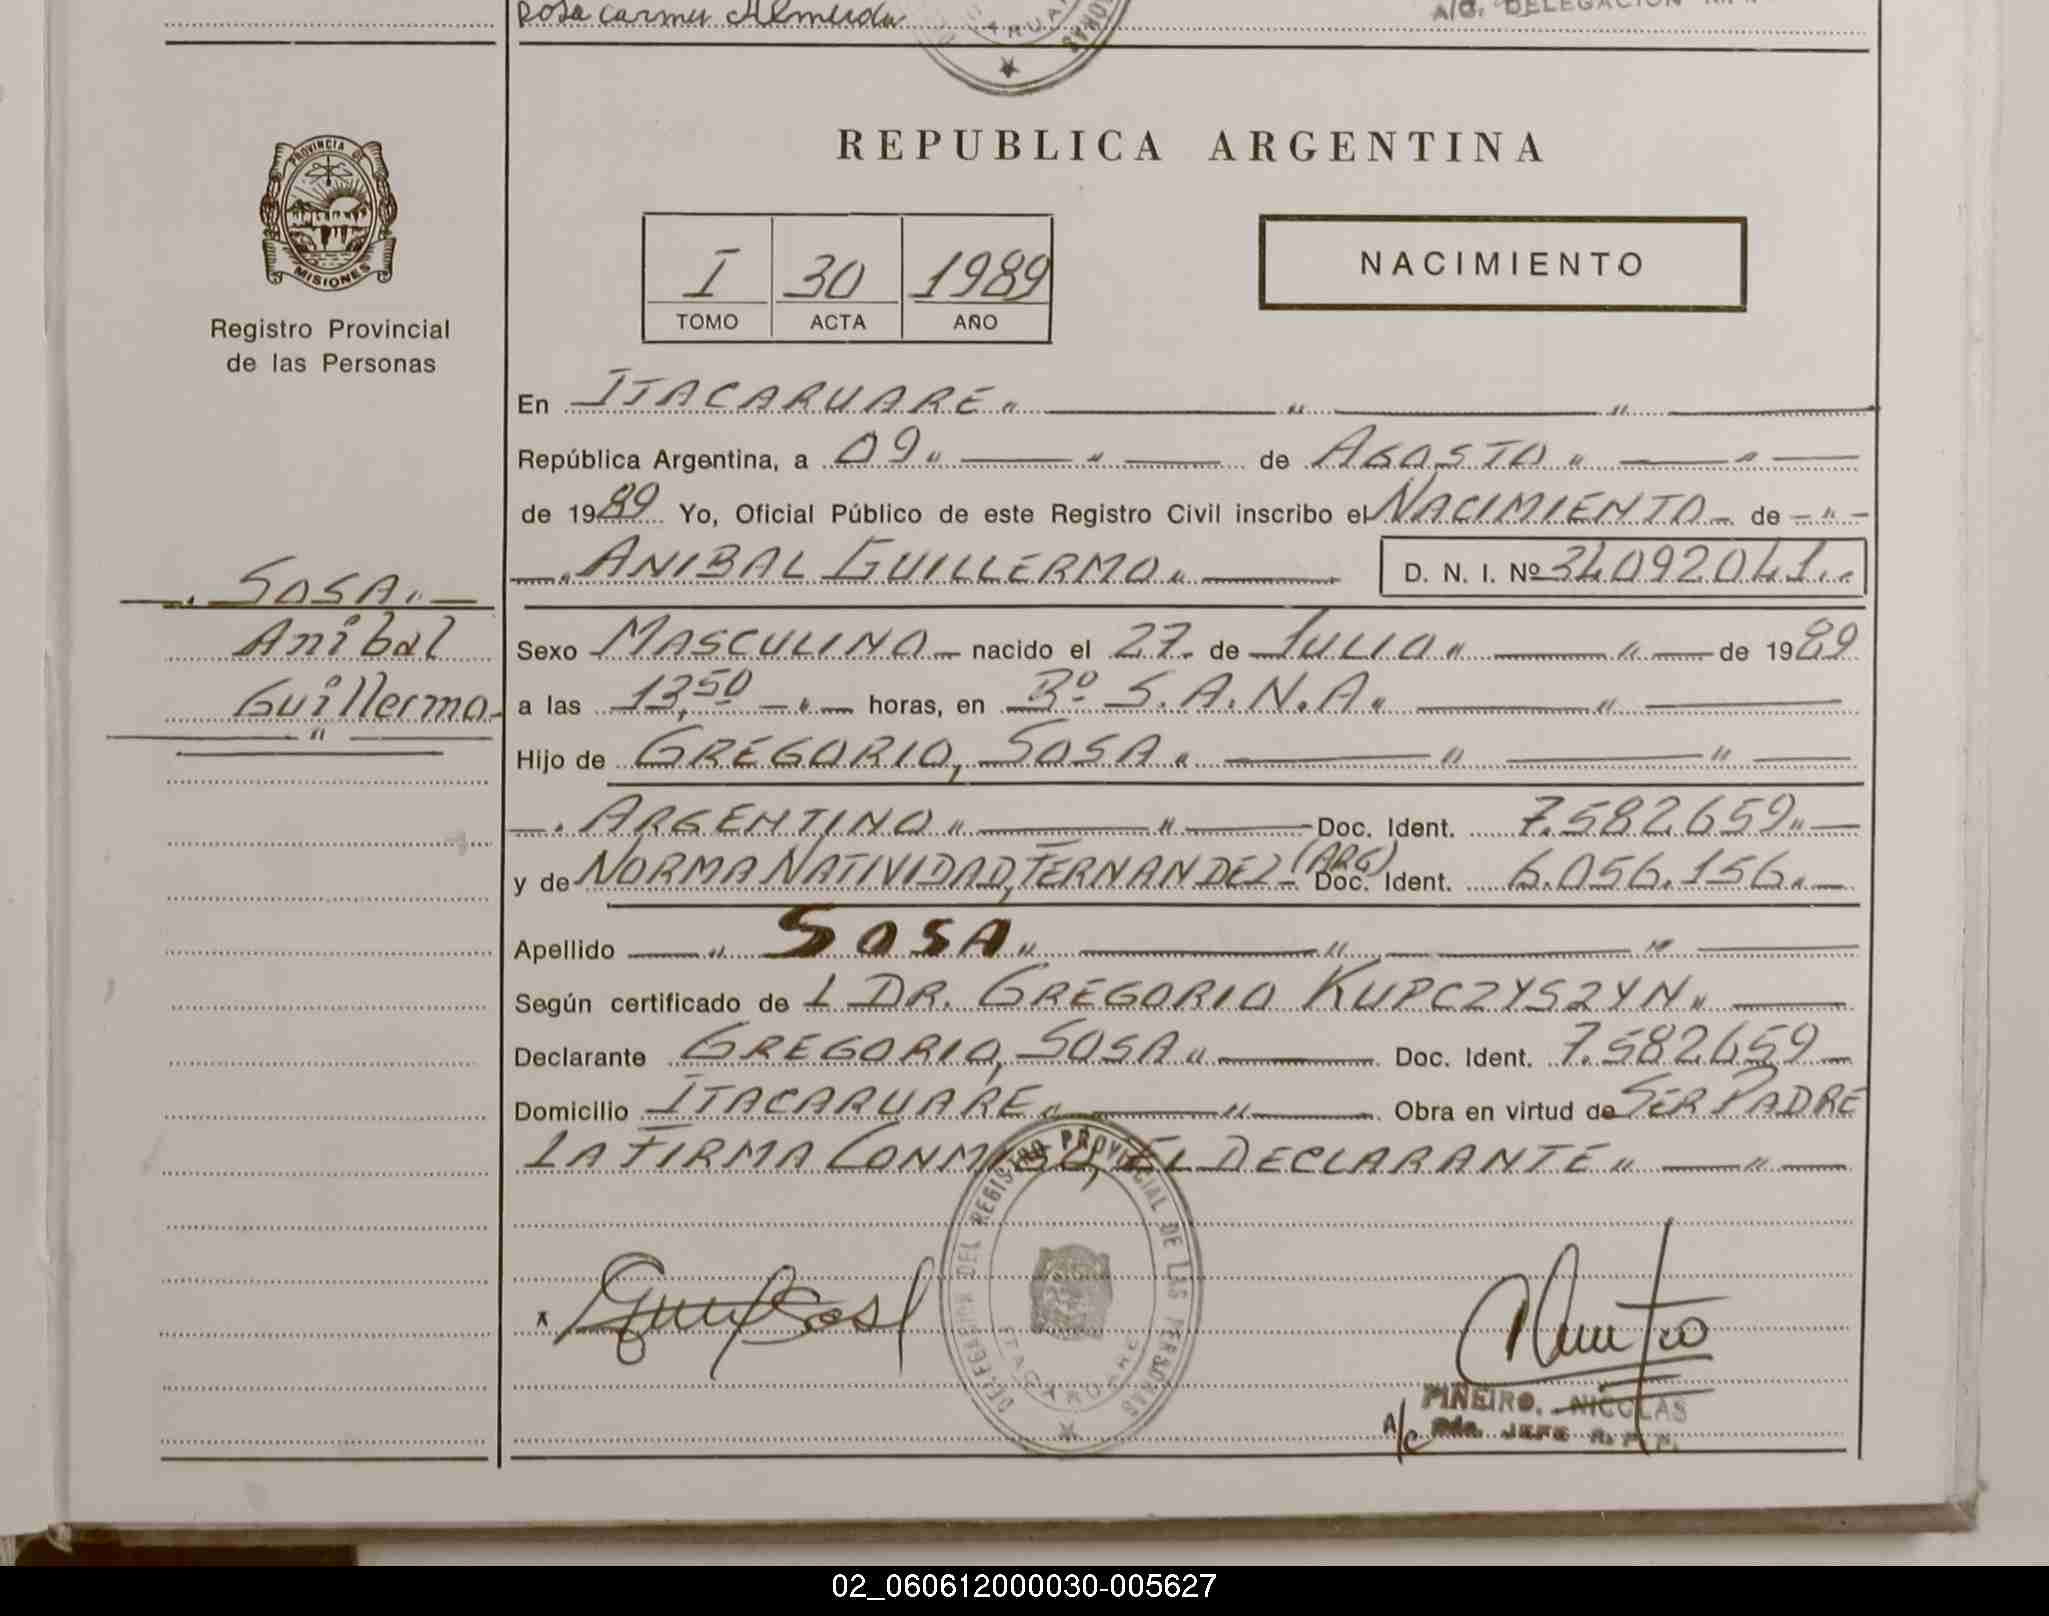 Rosa Carmen Almeida
A/C. DELEGACION
PROVINCIA DE
MISIONES
Registro Provincial
de las Personas
REPUBLICA ARGENTINA
I 30 1989
TOMO ACTA AÑO
NACIMIENTO
En ITACARUARE " — " — " —
República Argentina, a 09 " — " — de AGOSTO " — " —
de 1989 Yo, Oficial Público de este Registro Civil inscribo el NACIMIENTO — de — " —
— . ANIBAL GUILLERMO " — D. N. I. Nº 34092041..
— . SOSA " —
Anibal
Guillermo —
— " —
Sexo MASCULINO — nacido el 27 - de JULIO " — " — de 1989
a las 13,50 — " — horas, en Bº S.A.N.A. " — " —
Hijo de GREGORIO, SOSA " — " — " —
— . ARGENTINO " — " — Doc. Ident. 7.582.659 " —
y de NORMA NATIVIDAD, FERNANDEZ - (ARG) Doc. Ident. 6.056.156. —
Apellido — " SOSA " — " — " —
Según certificado de L DR. GREGORIO KUPCZYSZYN " —
Declarante GREGORIO, SOSA " — Doc. Ident. 7.582.659 —
Domicilio ITACARUARE " — " — Obra en virtud de SER PADRE
LA FIRMA CONMIGO, EL DECLARANTE " — " —
DELEGACION DEL REGISTRO PROVINCIAL DE LAS PERSONAS
ITACARUARE
x
PIÑEIRO, NICOLAS
A/c JEFE R.P.P.
02_060612000030-005627